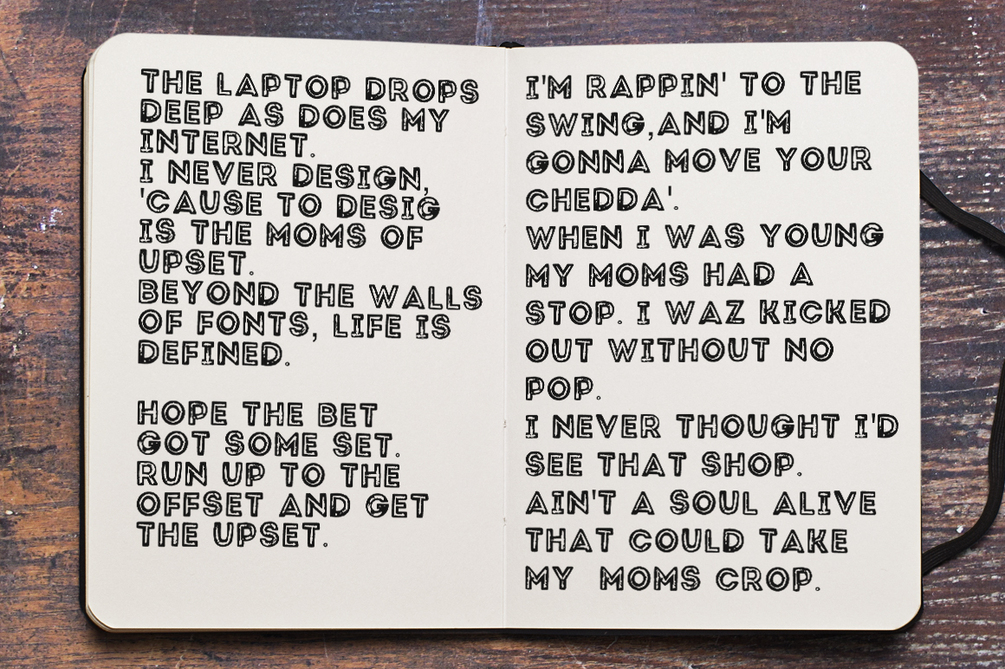 THE LAPTOP DROPS
DEEP AS DOES MY
INTERNET.
I NEVER DESIGN,
'CAUSE TO DESIG
IS THE MOMS OF
UPSET.
BEYOND THE WALLS
OF FONTS, LIFE IS
DEFINED.
HOPE THE BET
GOT SOME SET.
RUN UP TO THE
OFFSET AND GET
THE UPSET.
I'M RAPPIN' TO THE
SWING,AND I'M
GONNA MOVE YOUR
CHEDDA'.
WHEN I WAS YOUNG
MY MOMS HAD A
STOP. I WAZ KICKED
OUT WITHOUT NO
POP.
I NEVER THOUGHT I'D
SEE THAT SHOP.
AIN'T A SOUL ALIVE
THAT COULD TAKE
MY MOMS CROP.